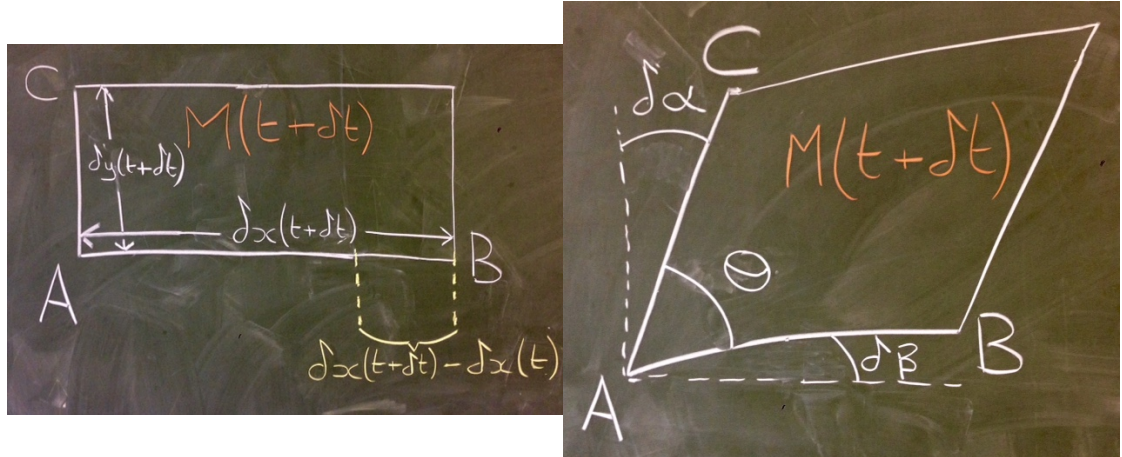 C
M(t+δt)
δy(t+δt)
δx(t+δt)
A
B
δx(t+δt)-δx(t)
C
δα
M(t+δt)
θ
δβ
B
A